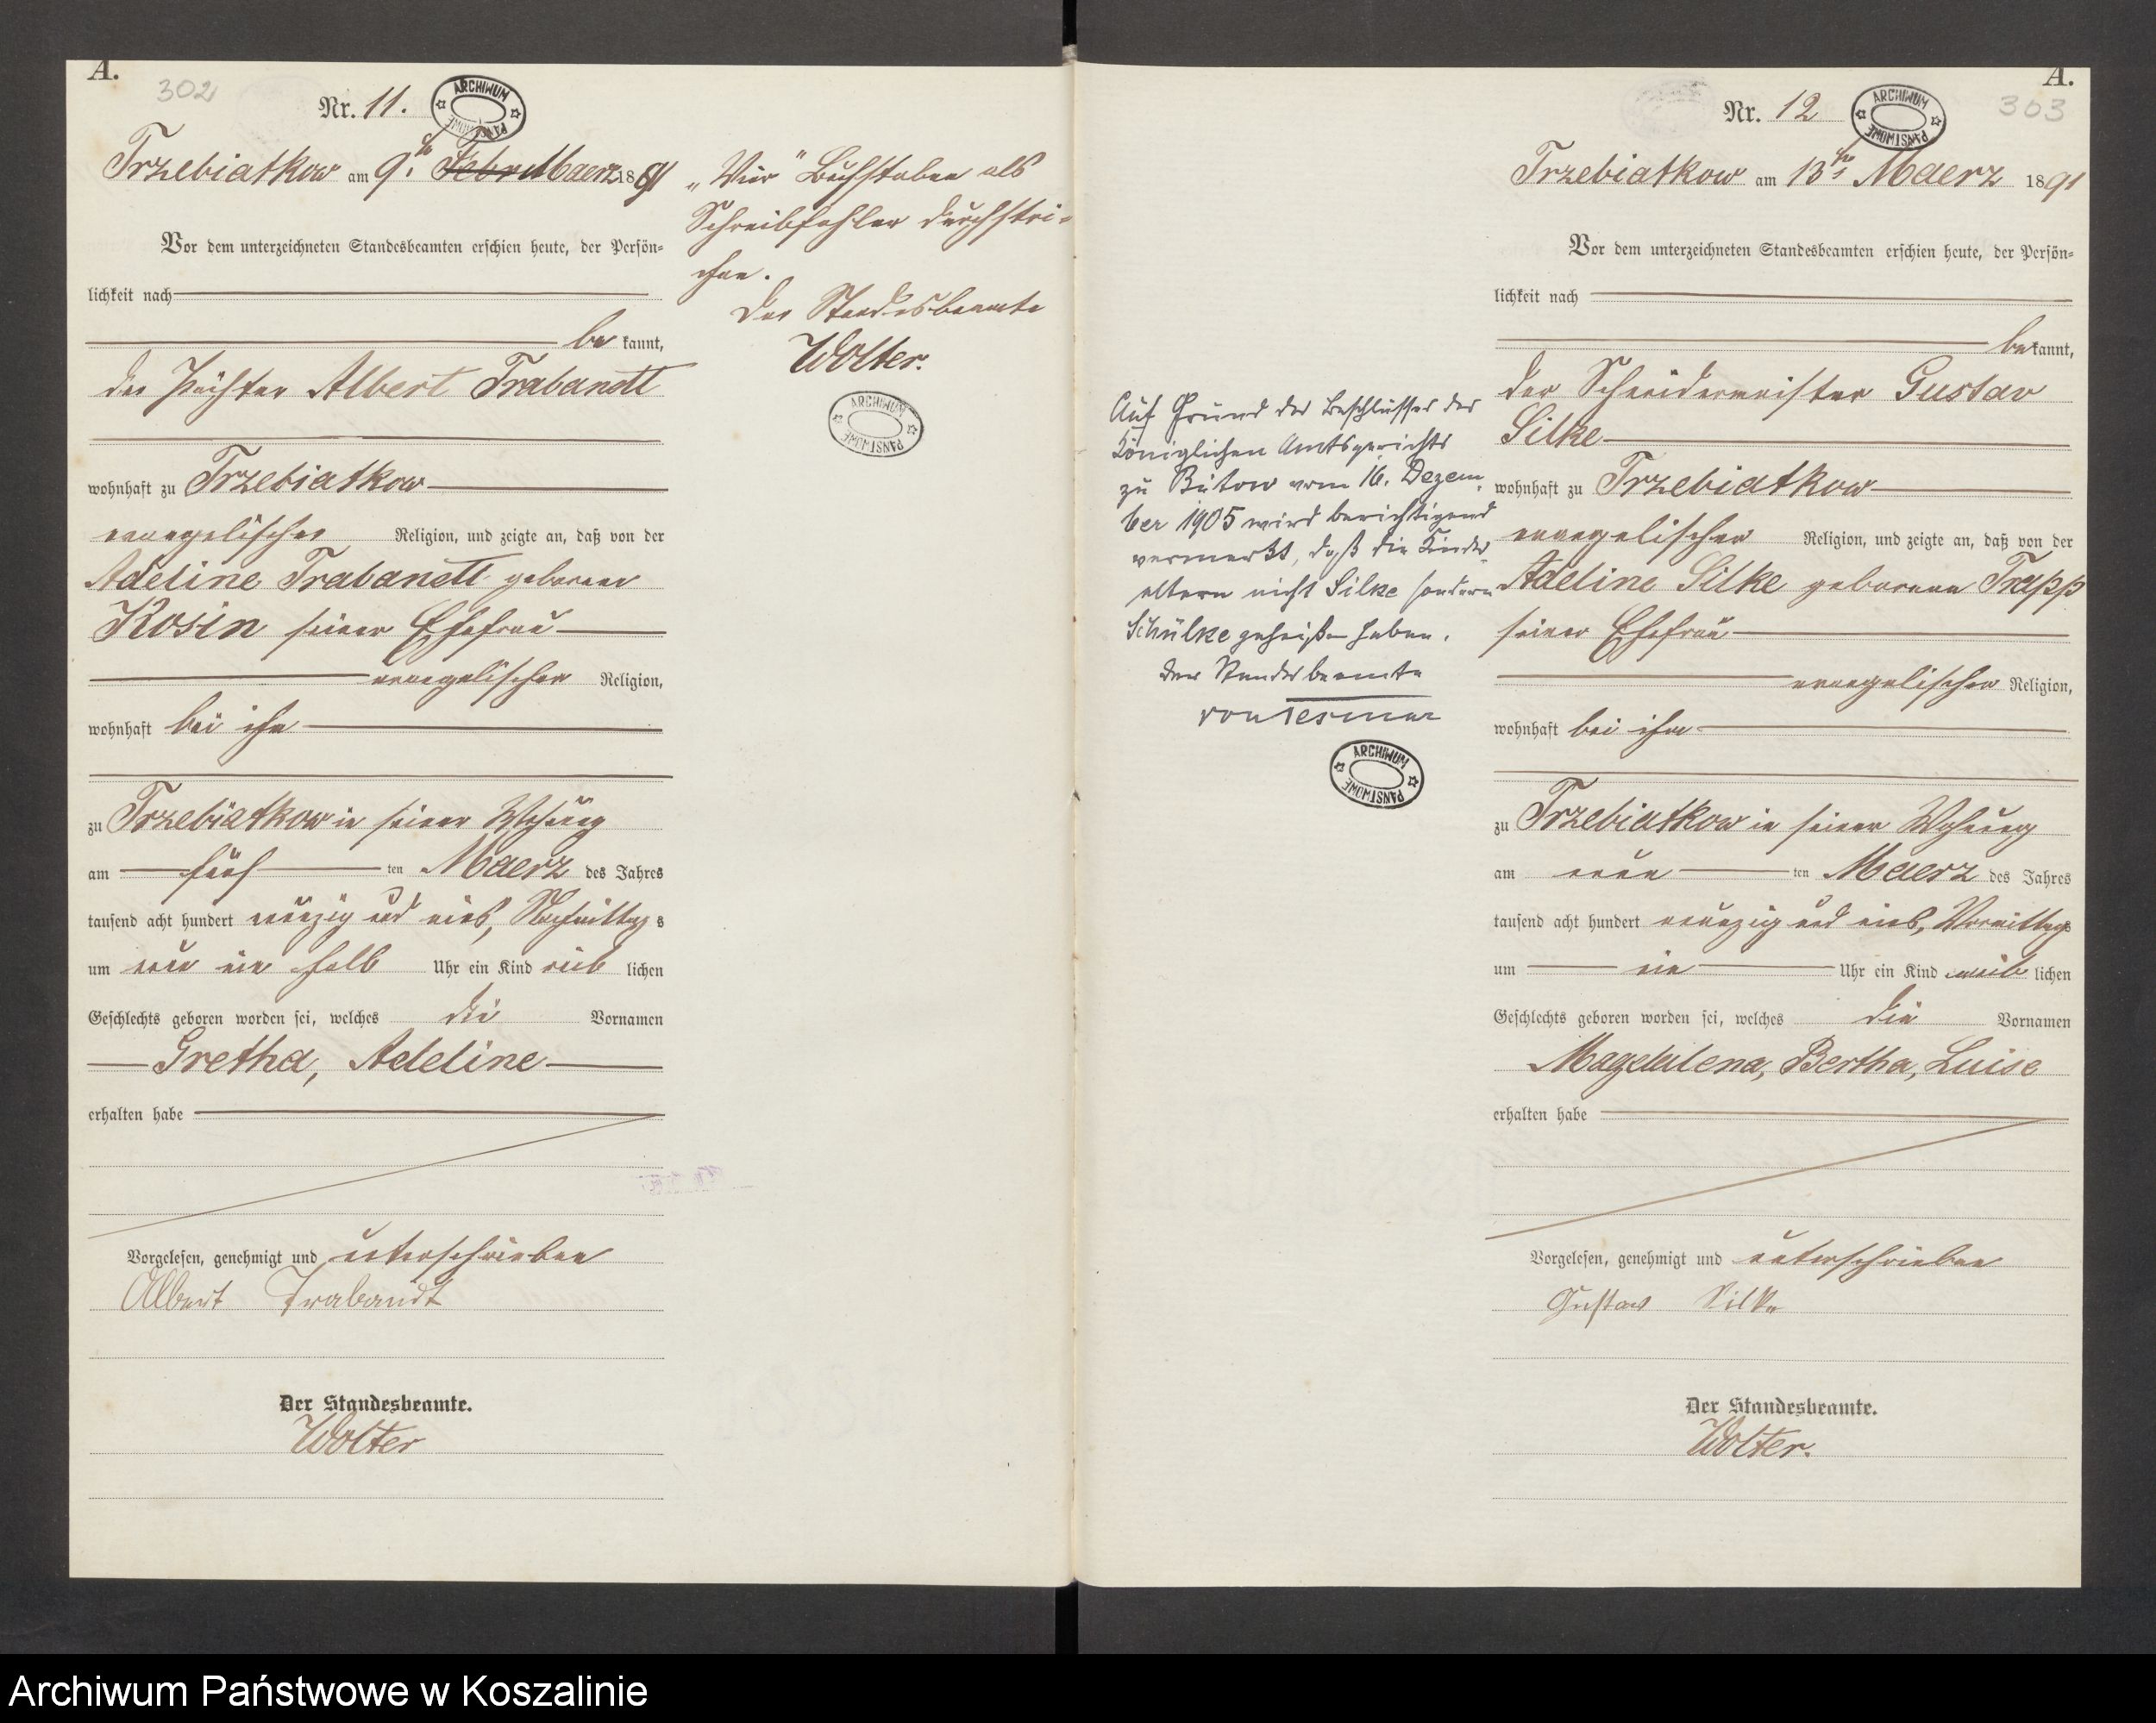 A.
302
Nr. 11.
ARCHIWUM PAŃSTWOWE
Trzebiatkow am 9ten Febru Maerz 1891
Vor dem unterzeichneten Standesbeamten erschien heute, der Persön-
lichkeit nach
be kannt,
der Pächter Albert Trabandt
wohnhaft zu Trzebiatkow
evangelischer Religion, und zeigte an, daß von der
Adeline Trabandt geborenen
Kosin seiner Ehefrau
evangelischer Religion,
wohnhaft bei ihm
zu Trzebiatkow in seiner Wohnung
am fünf ten Maerz des Jahres
tausend acht hundert neunzig und eins, Nachmittags
um neun ein halb Uhr ein Kind weib lichen
Geschlechts geboren worden sei, welches die Vornamen
Gretha, Adeline
erhalten habe
Vorgelesen, genehmigt und unterschrieben
Albert Trabandt
Der Standesbeamte.
Wolter
„Vier" Buchstaben als
Schreibfehler durchstri-
chen.
Der Standesbeamte
Wolter.
ARCHIWUM PAŃSTWOWE
A.
303
Nr. 12
ARCHIWUM PAŃSTWOWE
Trzebiatkow am 13ten Maerz 1891
Vor dem unterzeichneten Standesbeamten erschien heute, der Persön-
lichkeit nach
bekannt,
der Schneidermeister Gustav
Silke
wohnhaft zu Trzebiatkow
evangelischer Religion, und zeigte an, daß von der
Adeline Silke geborenen Trapp
seiner Ehefrau
evangelischer Religion,
wohnhaft bei ihm
zu Trzebiatkow in seiner Wohnung
am neun ten Maerz des Jahres
tausend acht hundert neunzig und eins, Vormittags
um ein Uhr ein Kind weib lichen
Geschlechts geboren worden sei, welches die Vornamen
Magdalena, Bertha, Luise
erhalten habe
Vorgelesen, genehmigt und unterschrieben
Gustav Silke
Der Standesbeamte.
Wolter.
Auf Grund des Beschlusses des
Königlichen Amtsgerichts
zu Bütow vom 16. Dezem-
ber 1905 wird berichtigend
vermerkt, daß die Kindes-
eltern nicht Silke sondern
Schülke geheißen haben.
Der Standesbeamte
ARCHIWUM PAŃSTWOWE
Archiwum Państwowe w Koszalinie